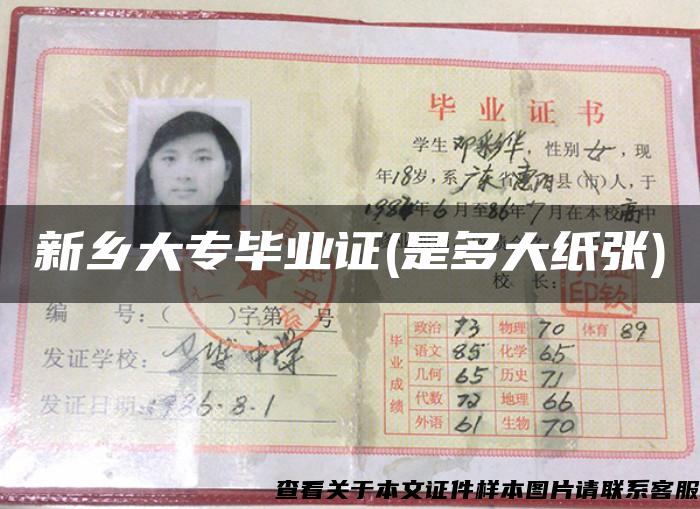 毕业证书
学生邓彩华，性别女，现
年18岁，系广东省惠阳县(市)人，于
年6月至86年7月在本校高中
新乡大专毕业证(是多大纸张)
校长：
编 号：( )字第 号
发证学校： 中学
发证日期：1986.8.1
毕业成绩
政治 73 物理 70 体育 89
语文 85 化学 65
几何 65 历史 71
代数 72 地理 66
外语 61 生物 70
查看关于本文证件样本图片请联系客服